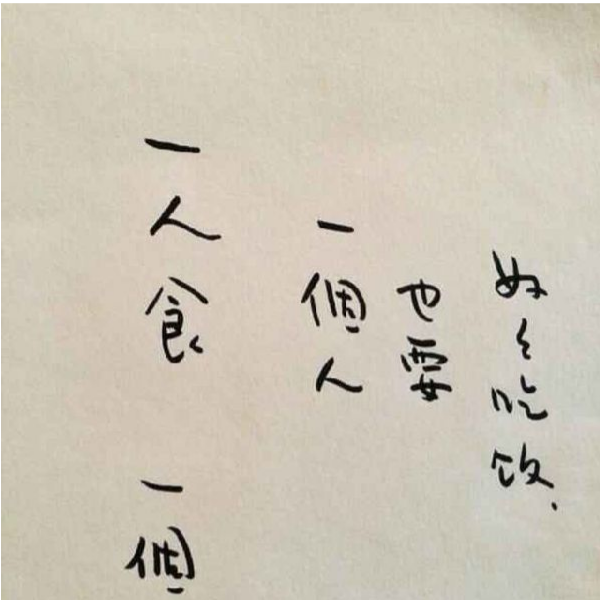 一人食
一個
一個人
也要
好々吃飯.